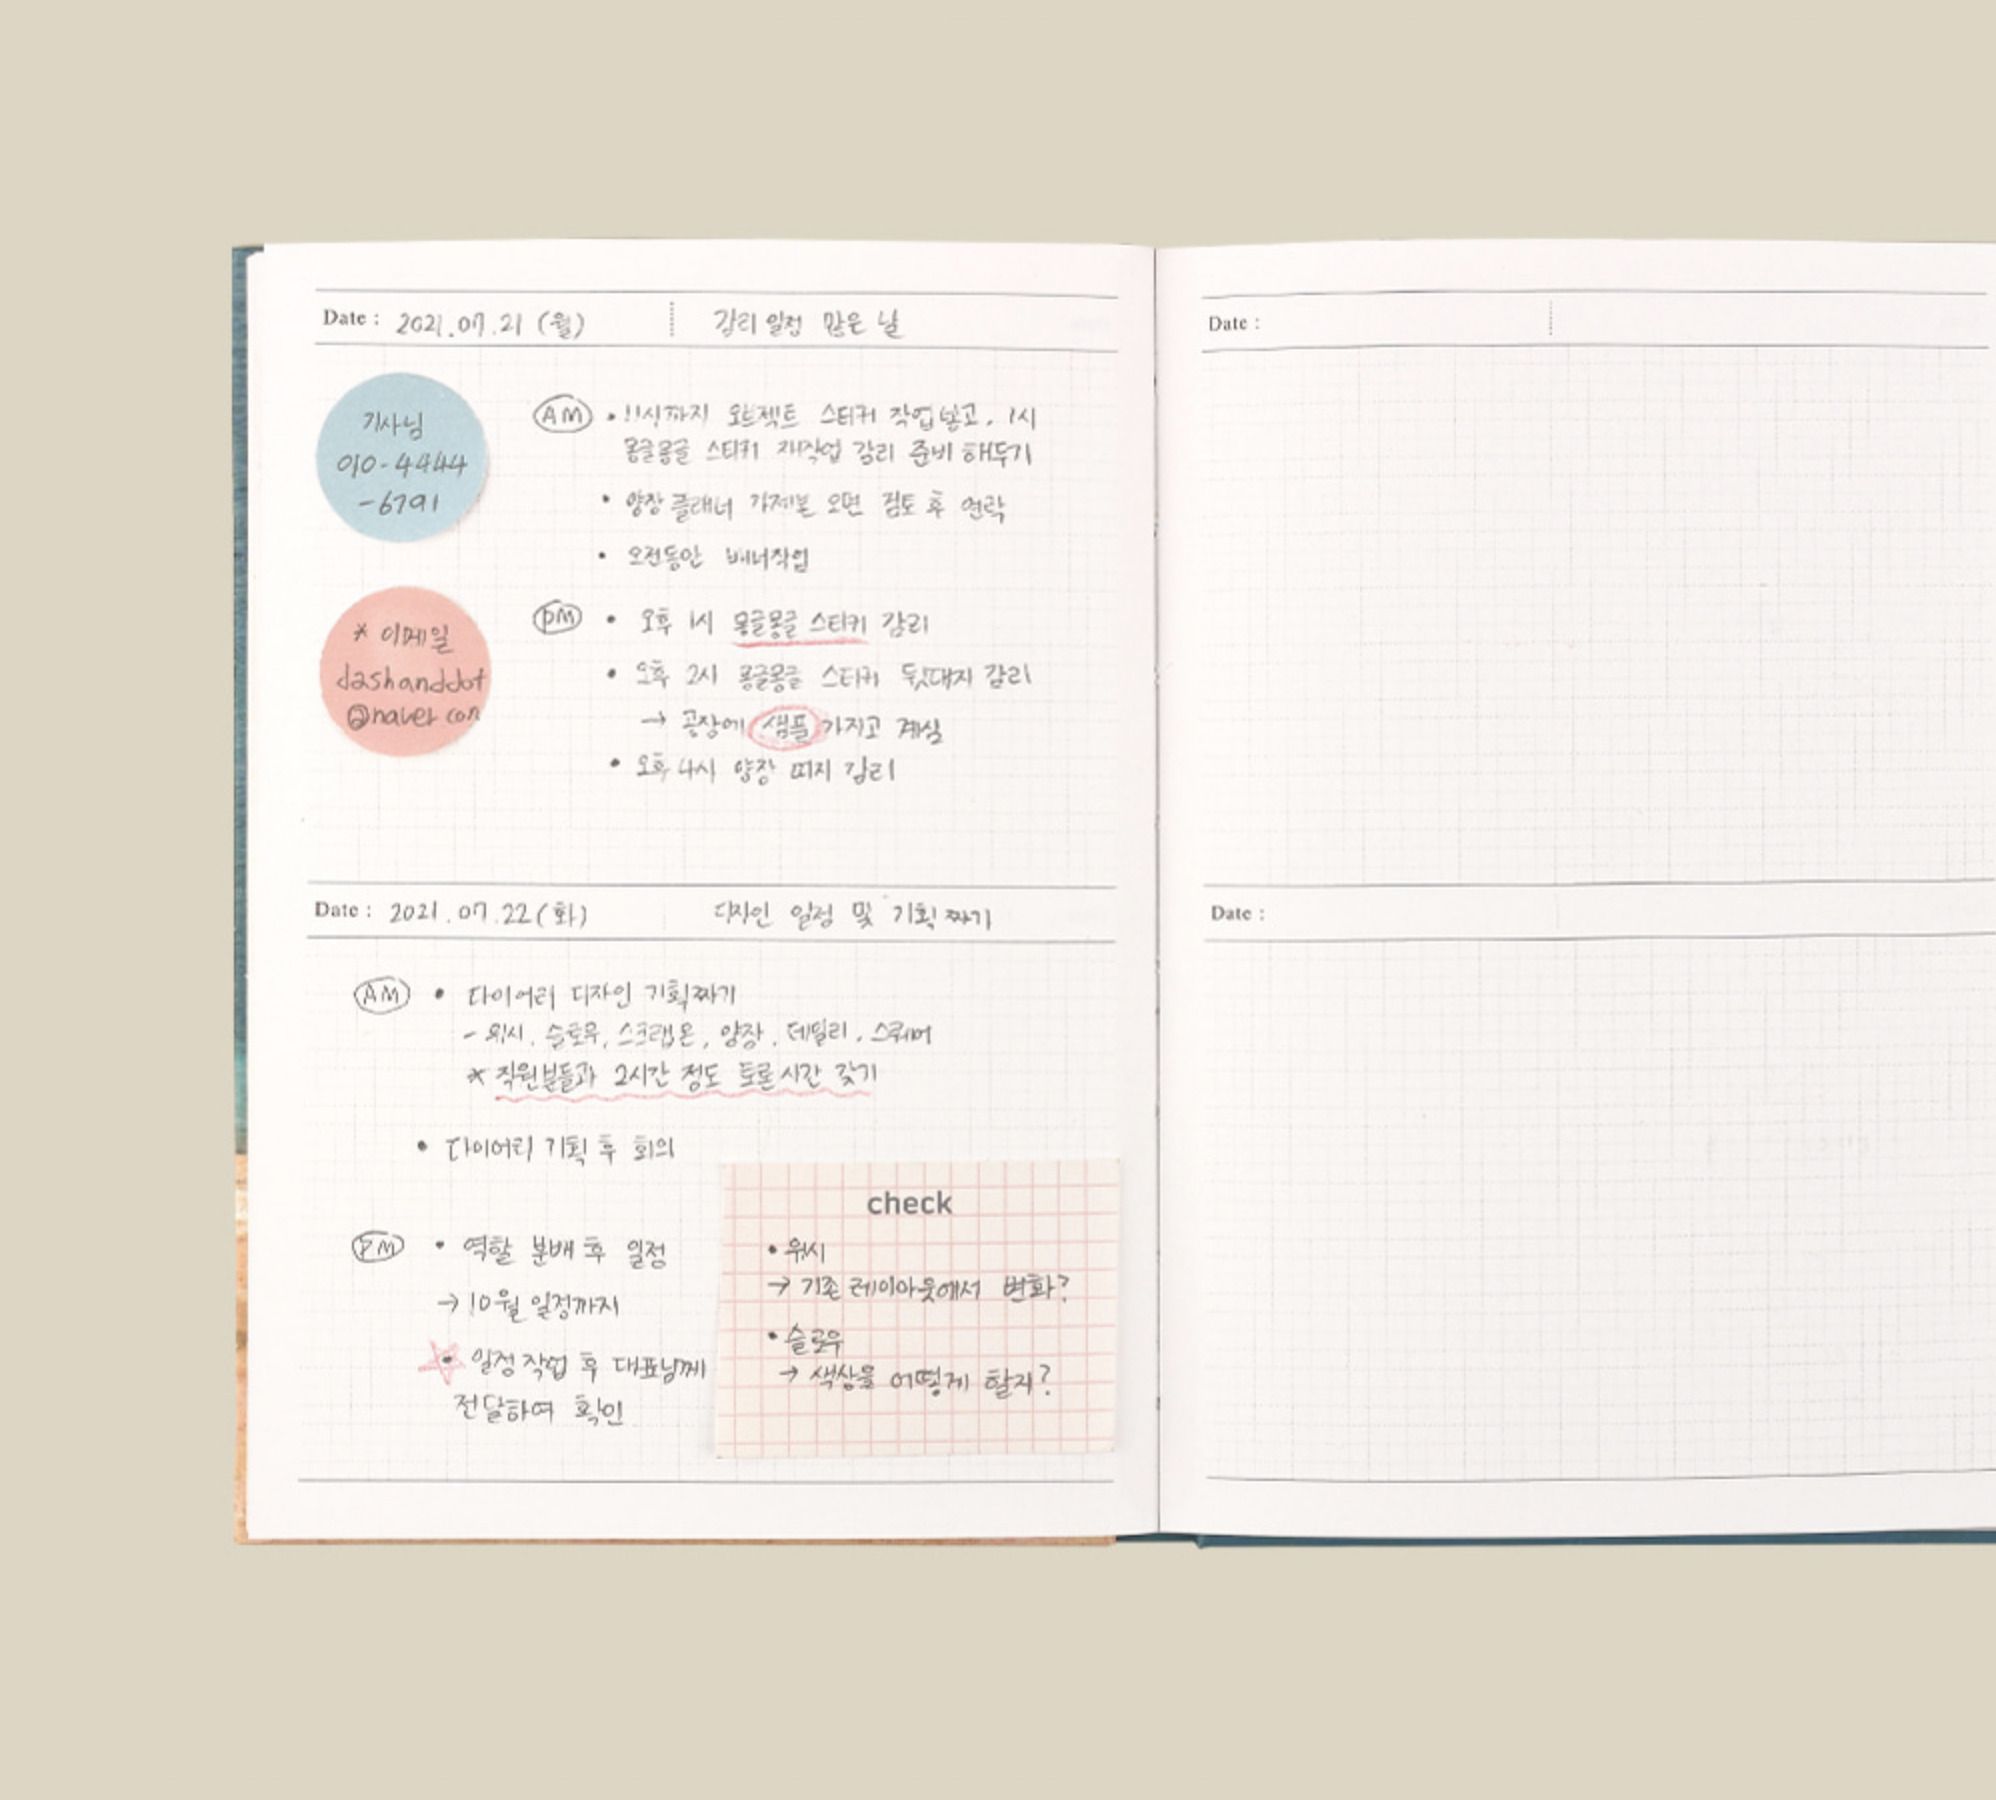 Date : 2021.07.21 (월) 감리 일정 많은 날
기사님
010-4444
-6791
AM • 11시까지 오브젝트 스티커 작업넣고, 1시
몽글몽글 스티커 재작업 감리 준비 해두기
• 양장 플래너 가제본 오면 검토 후 연락
• 오전동안 배너작업
* 이메일
dashanddot
@naver.com
PM • 오후 1시 몽글몽글 스티커 감리
• 오후 2시 몽글몽글 스티커 뒷대지 감리
→ 공장에 샘플 가지고 계심
• 오후 4시 양장 띠지 감리
Date : 2021.07.22 (화) 디자인 일정 및 기획 짜기
AM • 다이어리 디자인 기획짜기
- 위시, 슬로우, 스크랩온, 양장, 데일리, 스퀘어
* 직원분들과 2시간 정도 토론시간 갖기
• 다이어리 기획 후 회의
PM • 역할 분배 후 일정
→ 10월 일정까지
• 일정작업 후 대표님께
전달하여 확인
check
• 위시
→ 기존 레이아웃에서 변화?
• 슬로우
→ 색상을 어떻게 할지?
Date :
Date :